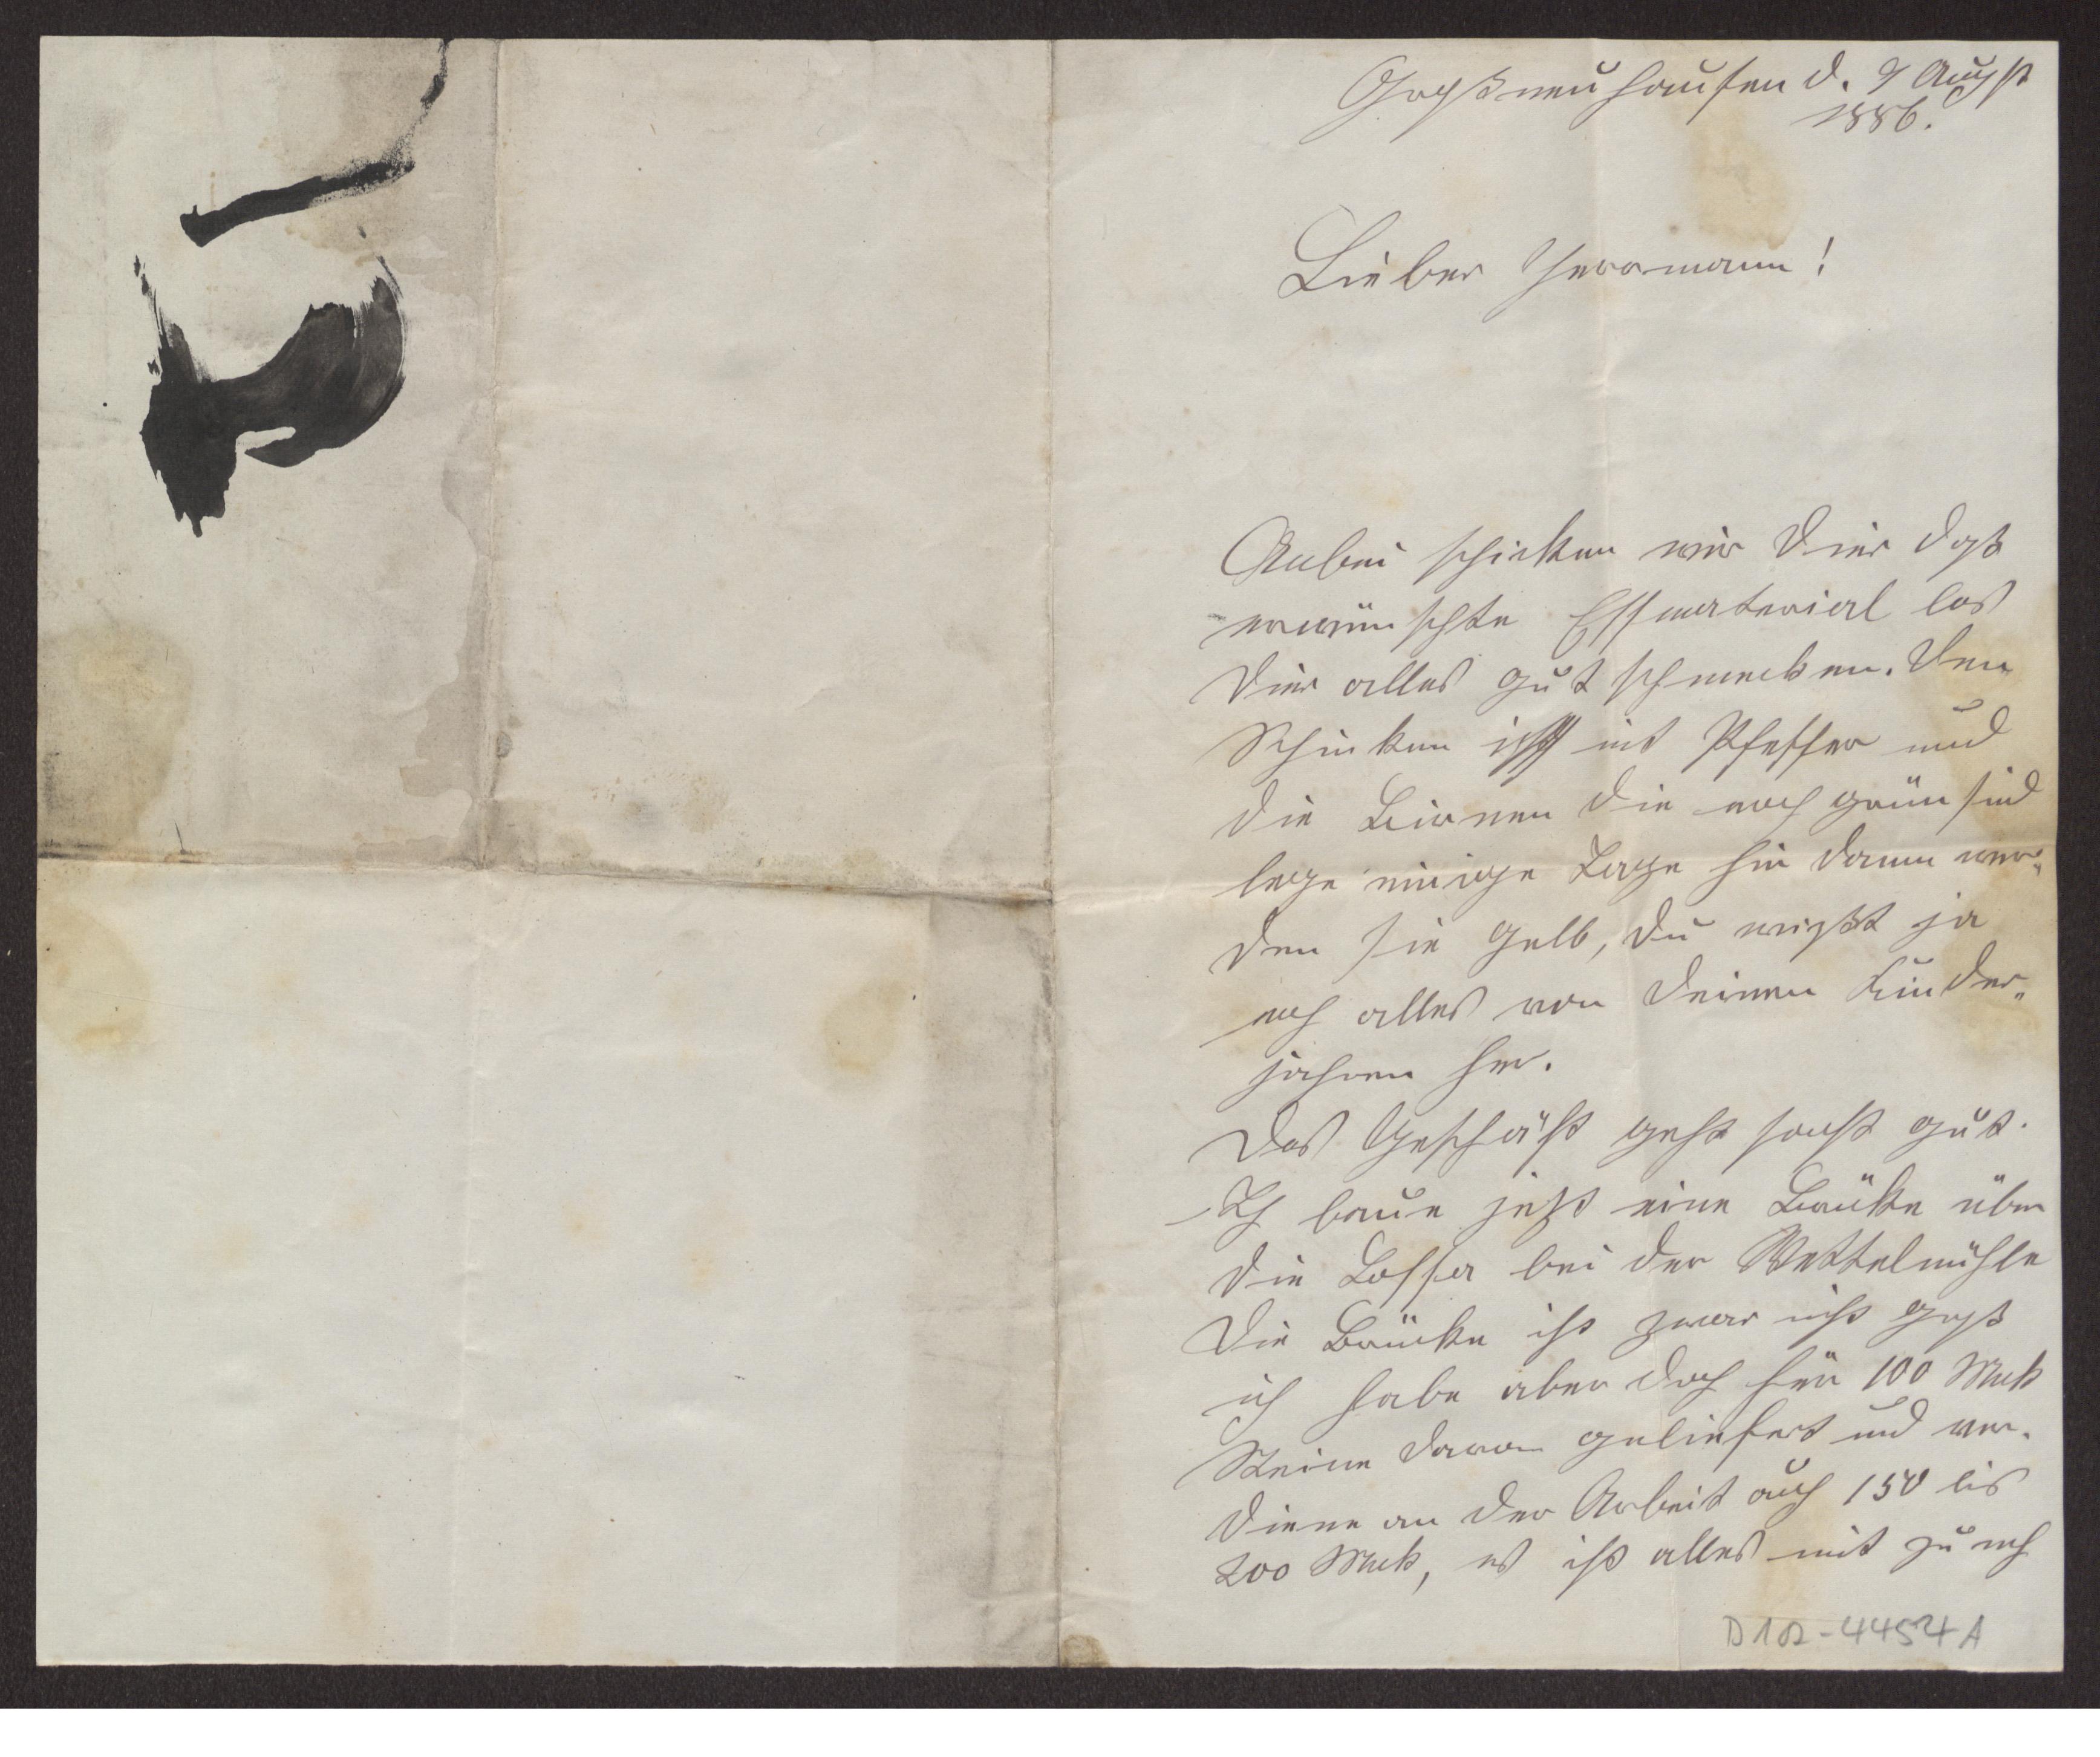 Großneuhausen d. 9 Augst
1886.
Lieber Herrmann!
Anbei schicken wir Dier daß
erwünschte Essmaterial las
Dier alles gut schmecken. Den
Schinken iß mit Pfeffer und
die Birnen die noch grün sind
lege einige Tage hin dann wer-
den sie gelb, du weißt ja
noch alles von deinen Kinder-
jahren her.
Das Geschäft geht sonst gut.
Ich baue jetzt eine Brücke über
die Lossa bei der Mühle
Die Brücke ist zwar nicht groß
ich habe aber doch für 100 Mk
Steine daran geliefert und ver-
diene an der Arbeit auch 150 bis
200 Mk, es ist alles mit zu
D102-4454A